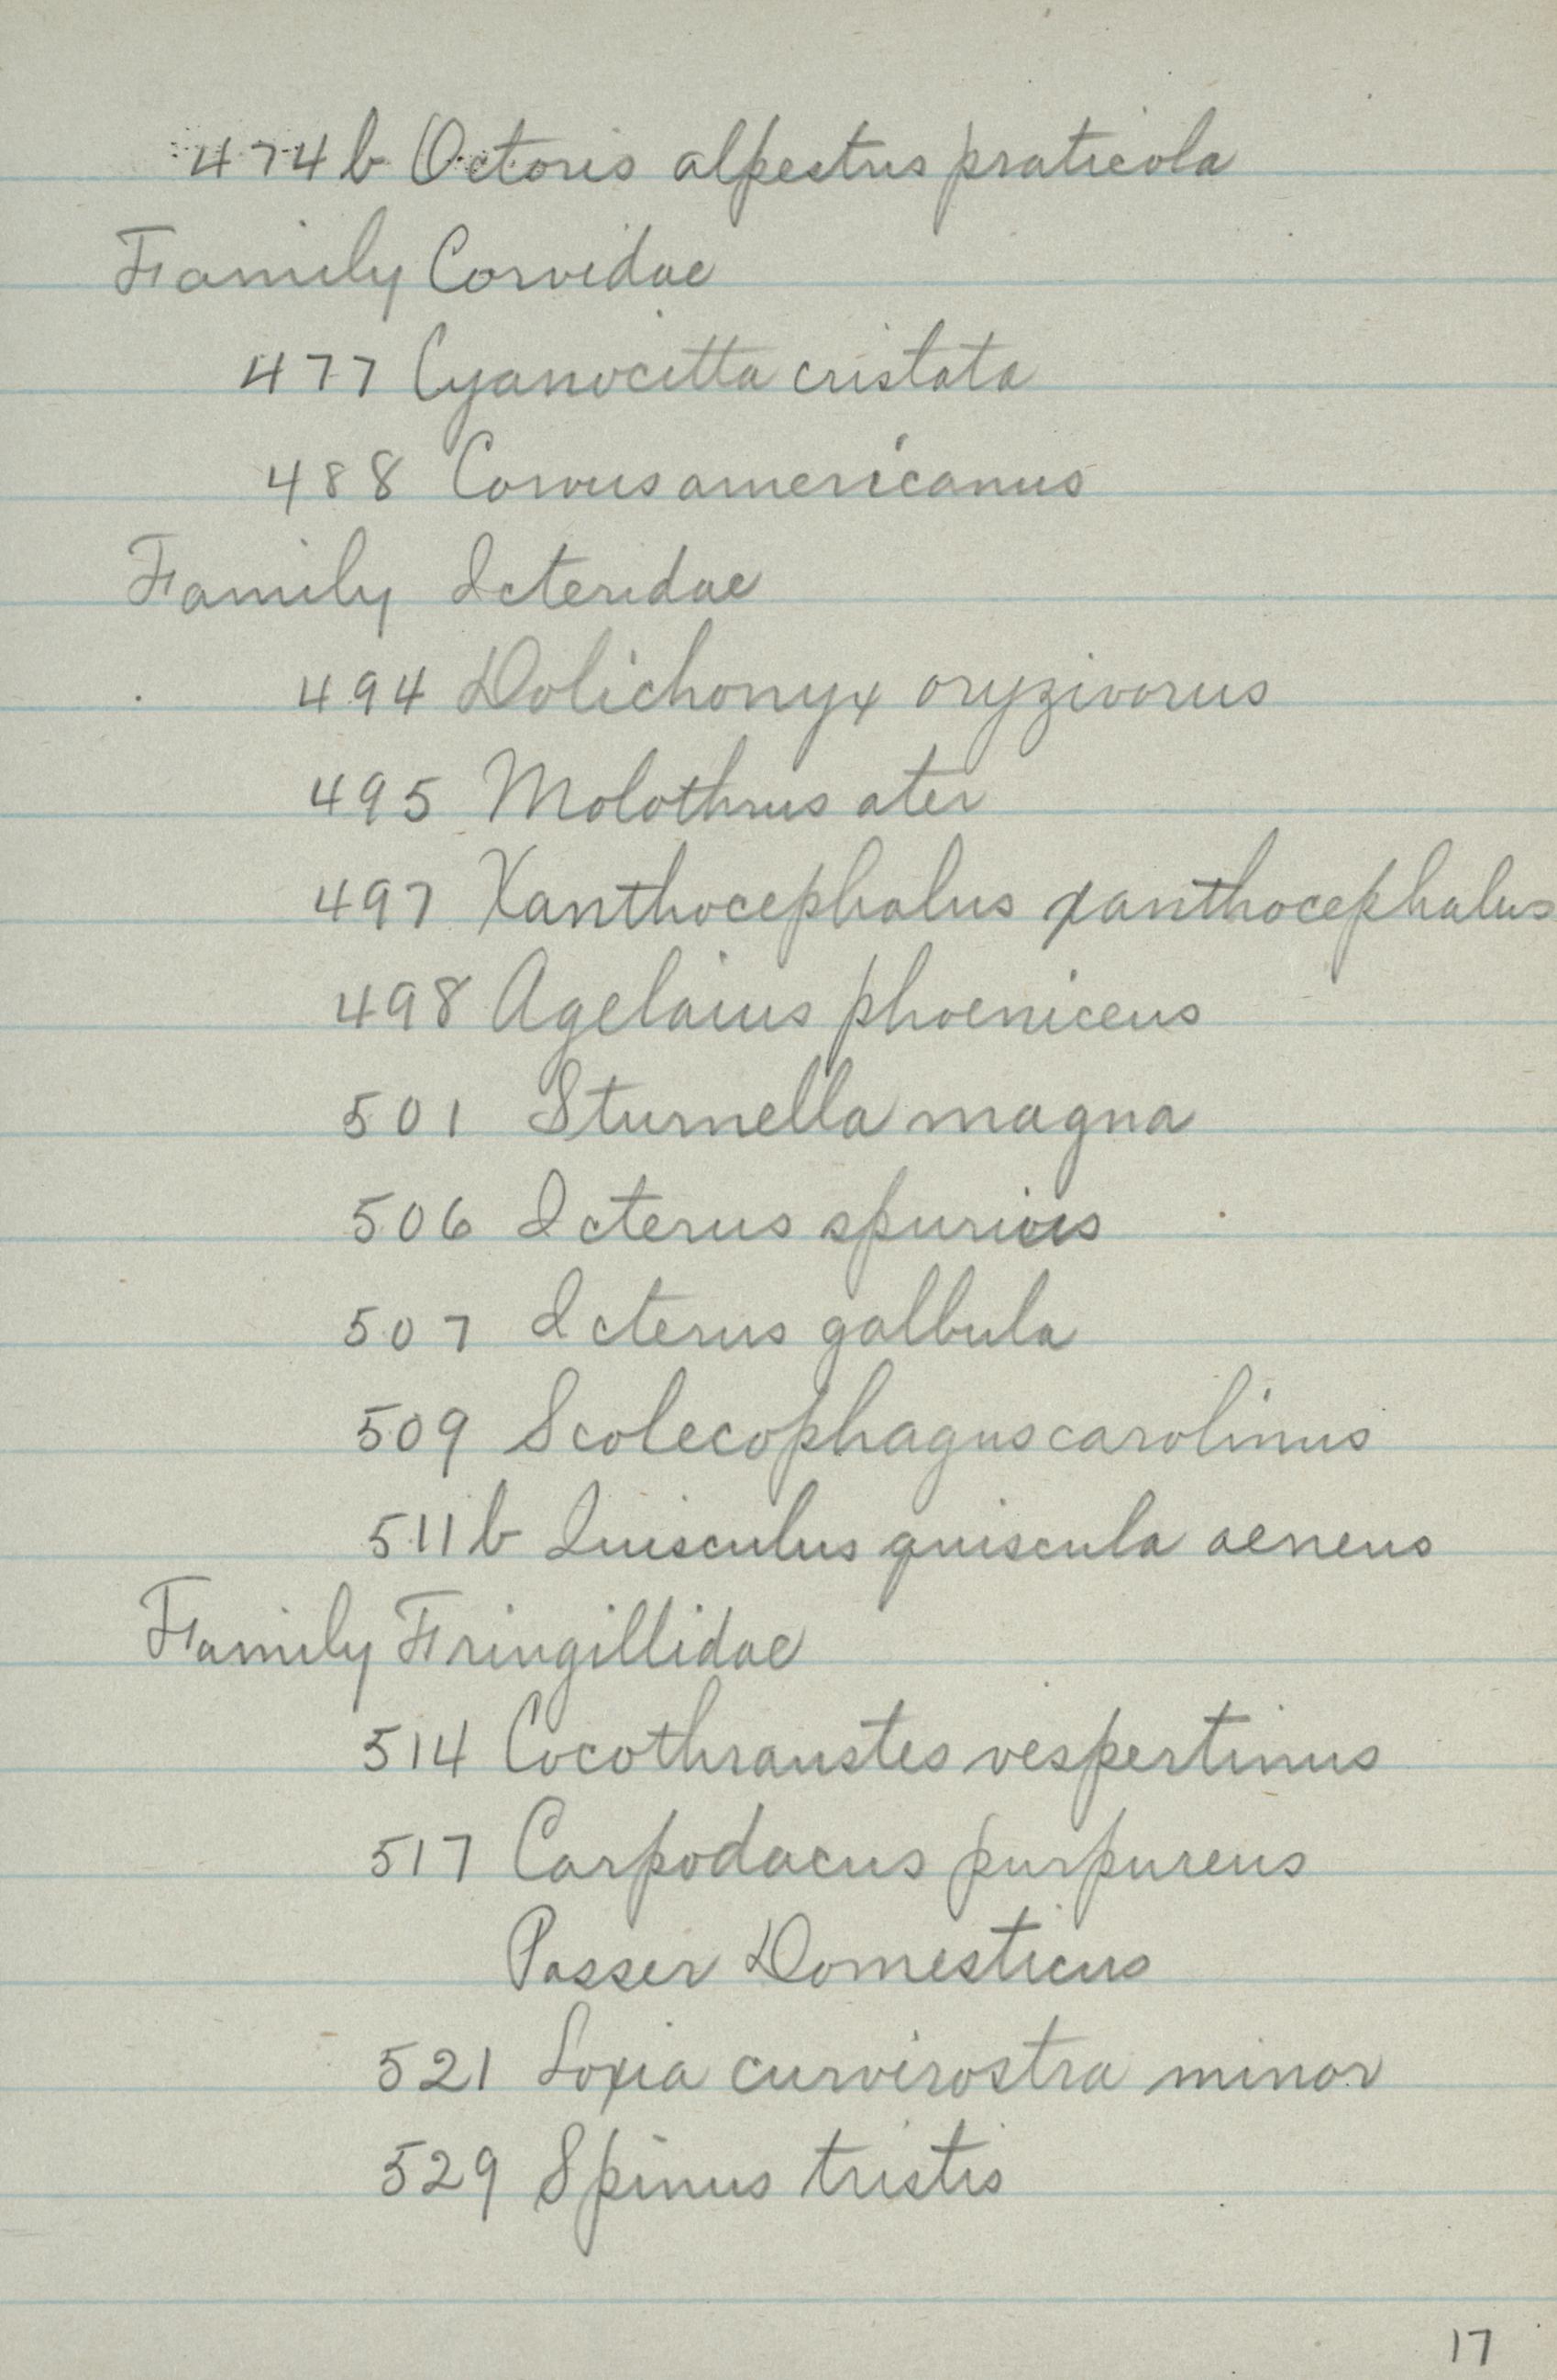 474b Octoris alpestris praticola
Family Corvidae
477 Cyanocitta cristata
488 Corvus americanus
Family Icteridae
494 Dolichonyx oryzivorus
495 Molothrus ater
497 Xanthocephalus xanthocephalus
498 Agelaius phoeniceus
501 Sturnella magna
506 Icterus spurius
507 Icterus galbula
509 Scolecophagus carolinus
511b Quisculus quiscula aeneus
Family Fringillidae
514 Cocothraustes vespertinus
517 Carpodacus purpureus
Passer Domesticus
521 Loxia curvirostra minor
529 Spinus tristis
17